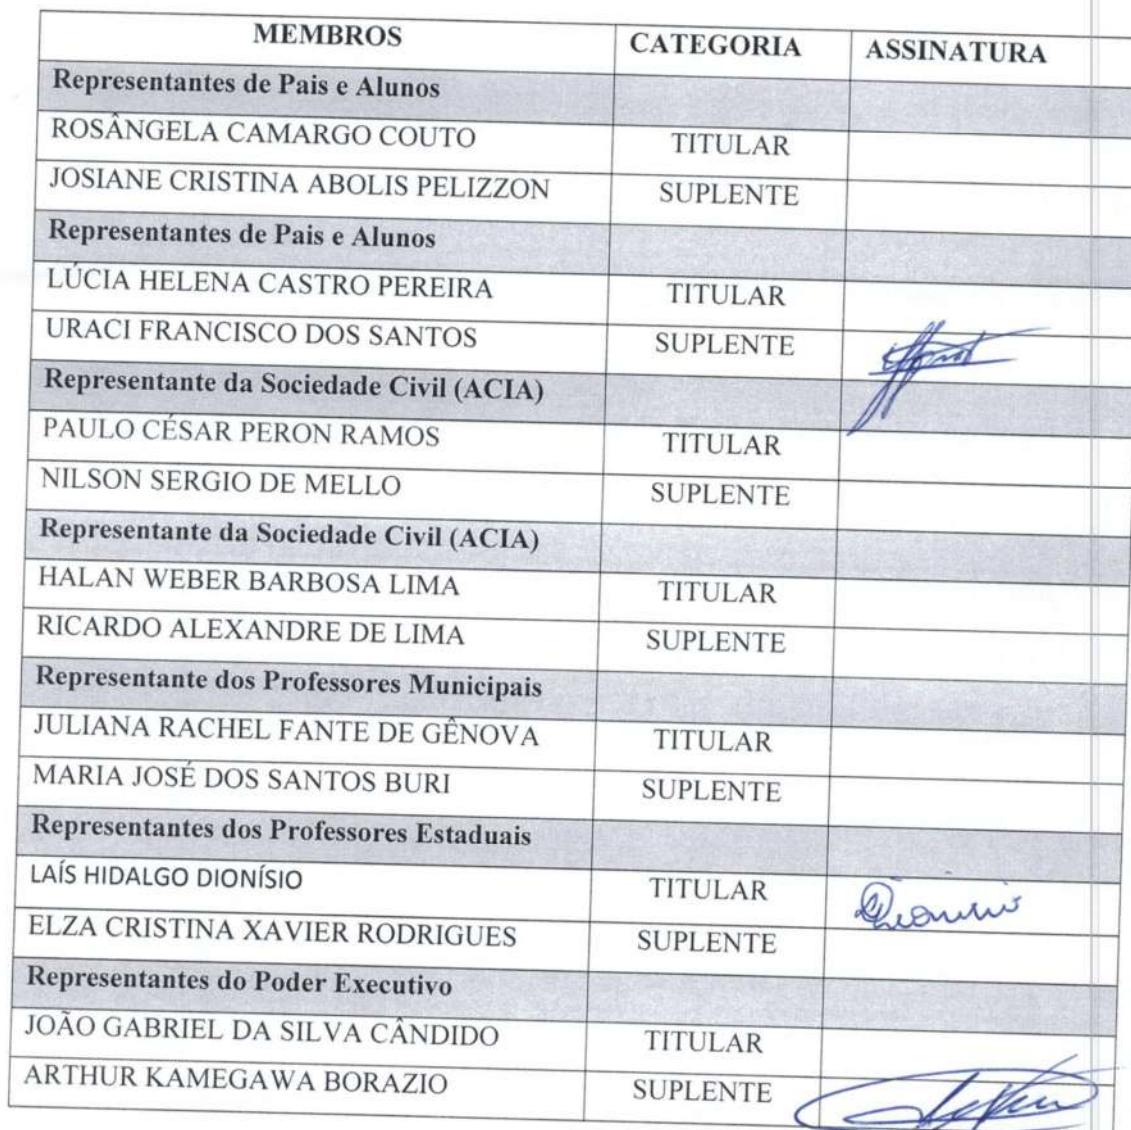 MEMBROS CATEGORIA ASSINATURA
Representantes de Pais e Alunos
ROSÂNGELA CAMARGO COUTO TITULAR
JOSIANE CRISTINA ABOLIS PELIZZON SUPLENTE
Representantes de Pais e Alunos
LÚCIA HELENA CASTRO PEREIRA TITULAR
URACI FRANCISCO DOS SANTOS SUPLENTE
Representante da Sociedade Civil (ACIA)
PAULO CÉSAR PERON RAMOS TITULAR
NILSON SERGIO DE MELLO SUPLENTE
Representante da Sociedade Civil (ACIA)
HALAN WEBER BARBOSA LIMA TITULAR
RICARDO ALEXANDRE DE LIMA SUPLENTE
Representante dos Professores Municipais
JULIANA RACHEL FANTE DE GÊNOVA TITULAR
MARIA JOSÉ DOS SANTOS BURI SUPLENTE
Representantes dos Professores Estaduais
LAÍS HIDALGO DIONÍSIO TITULAR
ELZA CRISTINA XAVIER RODRIGUES SUPLENTE
Representantes do Poder Executivo
JOÃO GABRIEL DA SILVA CÂNDIDO TITULAR
ARTHUR KAMEGAWA BORAZIO SUPLENTE